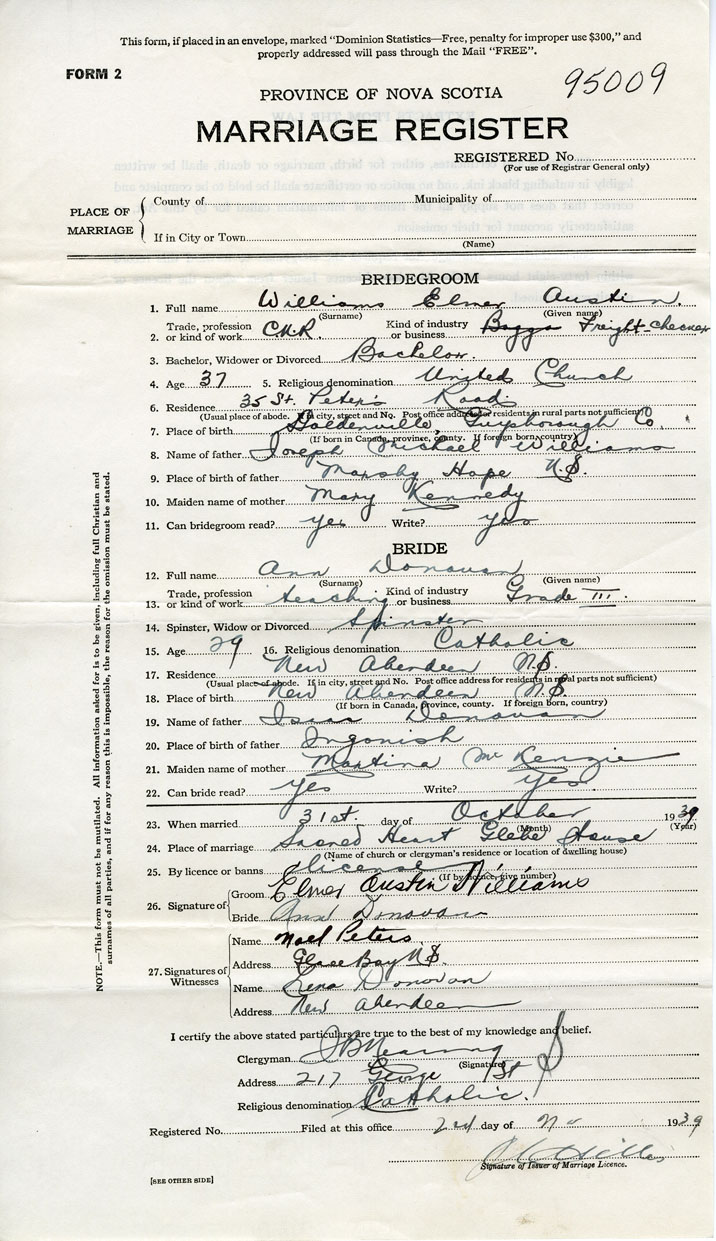 This form, if placed in an envelope, marked "Dominion Statistics—Free, penalty for improper use $300," and
properly addressed will pass through the Mail "FREE".
FORM 2
95009
PROVINCE OF NOVA SCOTIA
MARRIAGE REGISTER
REGISTERED No.
(For use of Registrar General only)
PLACE OF MARRIAGE
County of Municipality of
If in City or Town
(Name)
BRIDEGROOM
1. Full name Williams Elmer Austin.
(Surname) (Given name)
2. Trade, profession or kind of work C.N.R. Kind of industry or business Bagga Freight-checker
3. Bachelor, Widower or Divorced Bachelor.
4. Age 37 5. Religious denomination United Church
6. Residence 35 St. Peter's Road
(Usual place of abode. If in city, street and No. Post office address for residents in rural parts not sufficient)
7. Place of birth Goldenville, Guysborough Co.
(If born in Canada, province, county. If foreign born, country)
8. Name of father Joseph Michael Williams
9. Place of birth of father Marshy Hope N.S.
10. Maiden name of mother Mary Kennedy
11. Can bridegroom read? yes Write? yes
BRIDE
12. Full name Ann Donovan
(Surname) (Given name)
13. Trade, profession or kind of work teaching Kind of industry or business Grade III.
14. Spinster, Widow or Divorced Spinster
15. Age 29 16. Religious denomination Catholic
17. Residence New Aberdeen N.S.
(Usual place of abode. If in city, street and No. Post office address for residents in rural parts not sufficient)
18. Place of birth New Aberdeen N.S.
(If born in Canada, province, county. If foreign born, country)
19. Name of father Isaac Donovan
20. Place of birth of father Ingonish
21. Maiden name of mother Martina McKenzie
22. Can bride read? yes Write? yes
23. When married 31st. day of October 1939
(Month) (Year)
24. Place of marriage Sacred Heart Glebe House
(Name of church or clergyman's residence or location of dwelling house)
25. By licence or banns license
(If by licence, give number)
26. Signature of
Groom Elmer Austin Williams
Bride Ann Donovan
27. Signatures of Witnesses
Name Noel Peters.
Address Glace Bay N.S.
Name Lena Donovan
Address New Aberdeen
I certify the above stated particulars are true to the best of my knowledge and belief.
Clergyman
(Signature)
Address 217 George St
Religious denomination Catholic.
Registered No. Filed at this office 2nd day of 1939
Signature of Issuer of Marriage Licence.
[SEE OTHER SIDE]
NOTE.—This form must not be mutilated. All information asked for is to be given, including full Christian and
surnames of all parties, and if for any reason this is impossible, the reason for the omission must be stated.